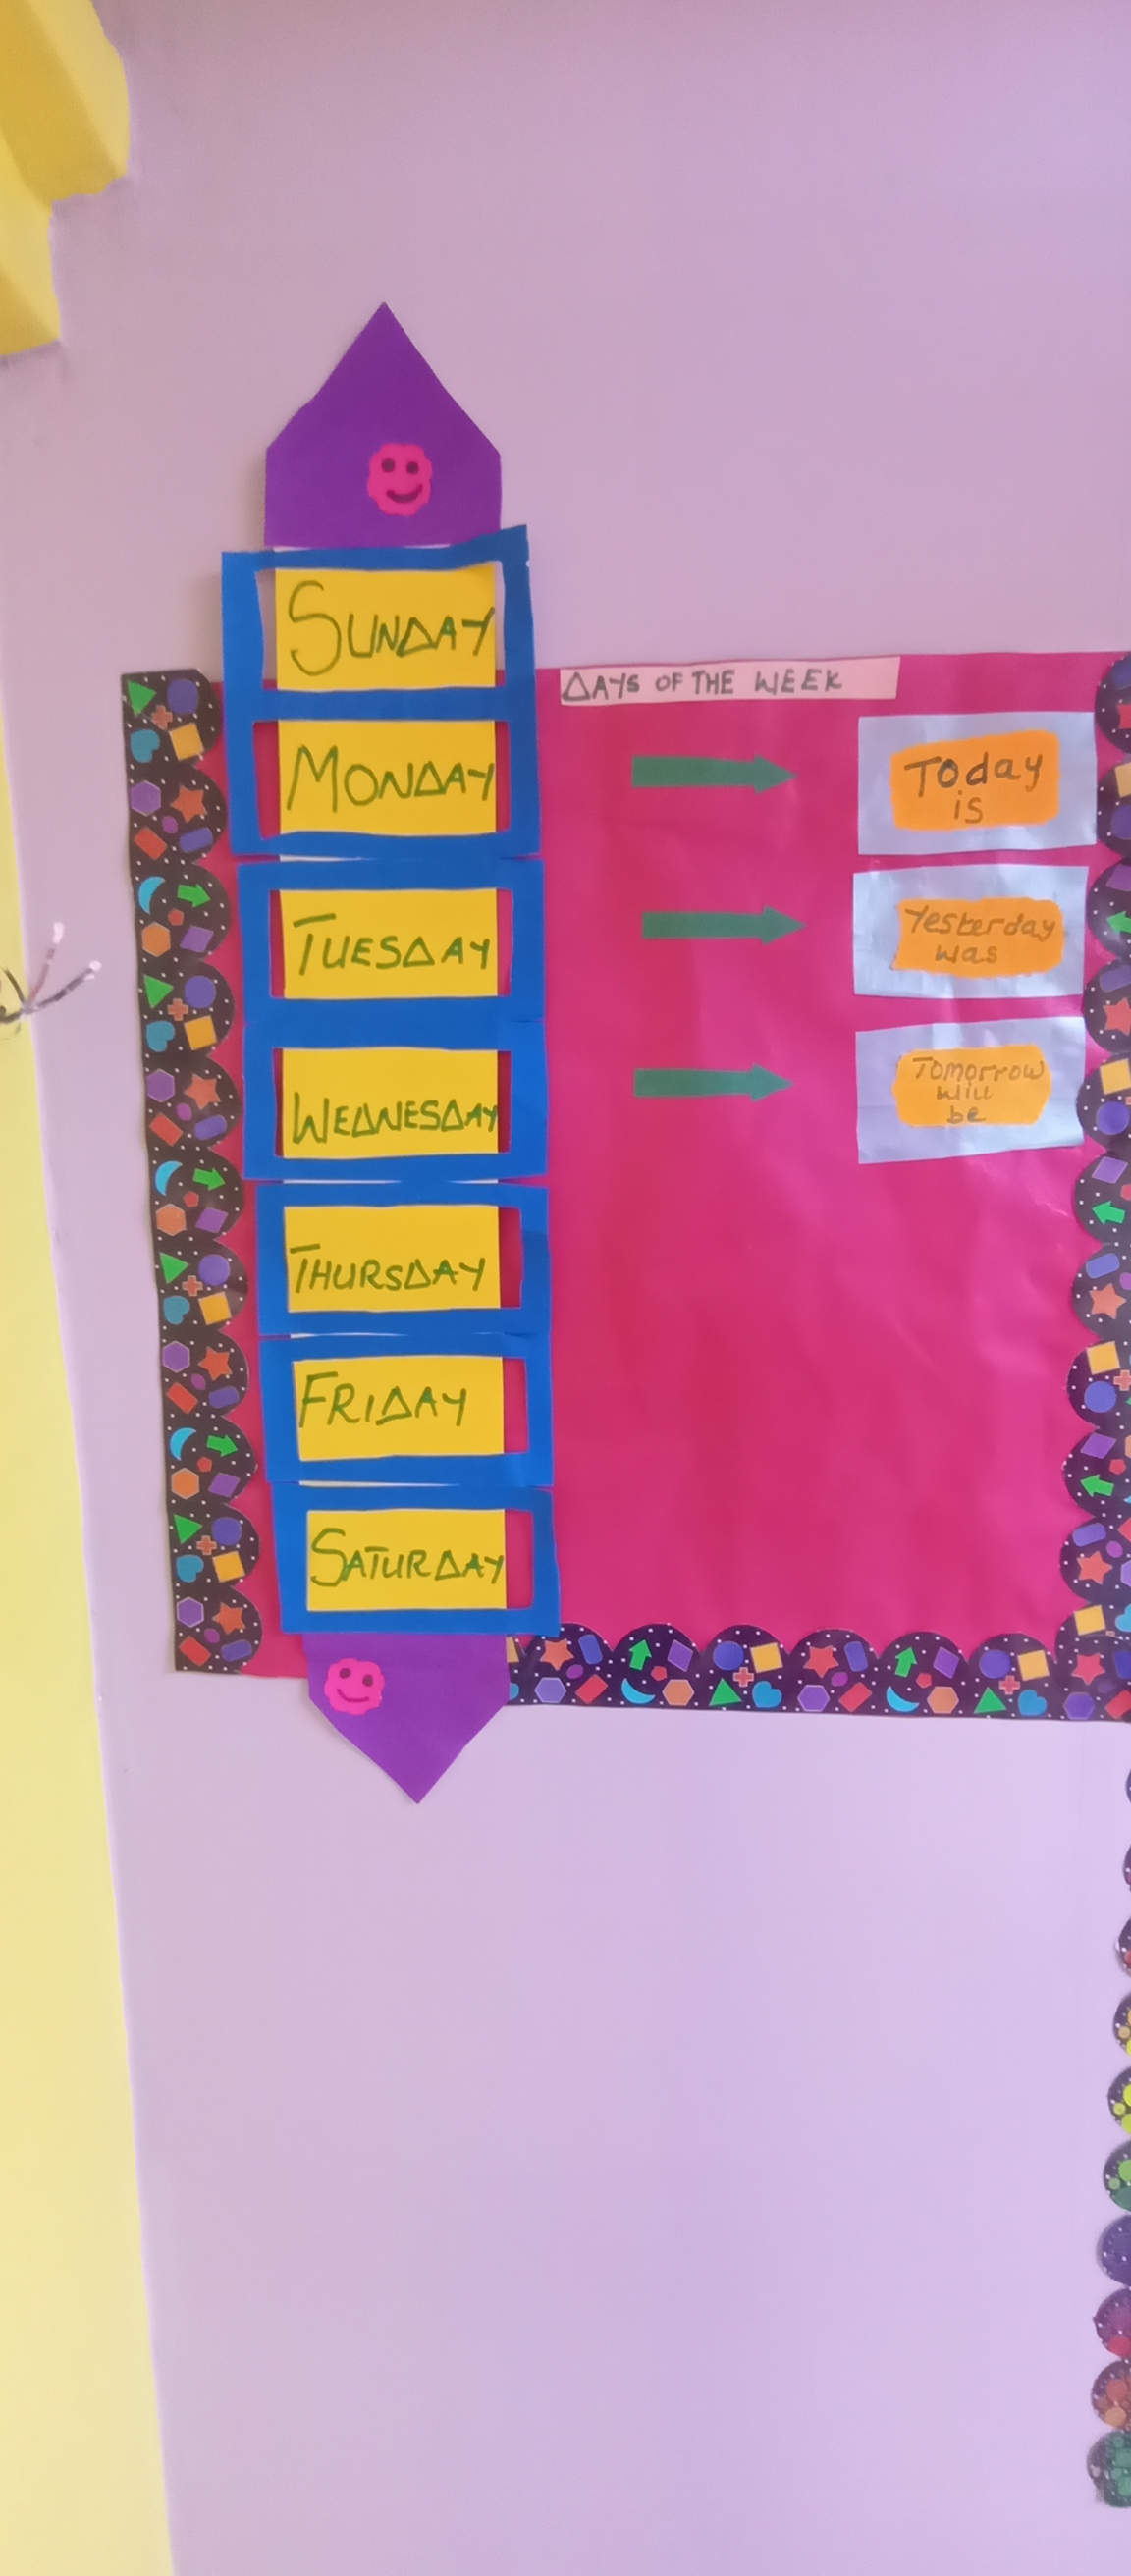 SUNDAY
MONDAY
TUESDAY
WEDNESDAY
THURSDAY
FRIDAY
SATURDAY
DAYS OF THE WEEK
Today
is
Yesterday
was
Tomorrow
will
be